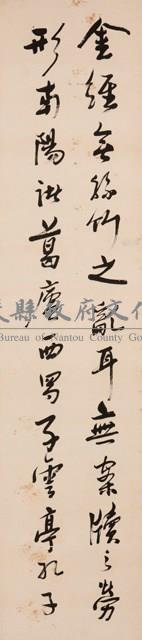 金經無絲竹之亂耳無案牘之勞
形南陽諸葛廬西蜀子雲亭孔子
縣政府文化
Bureau of Nantou County Go